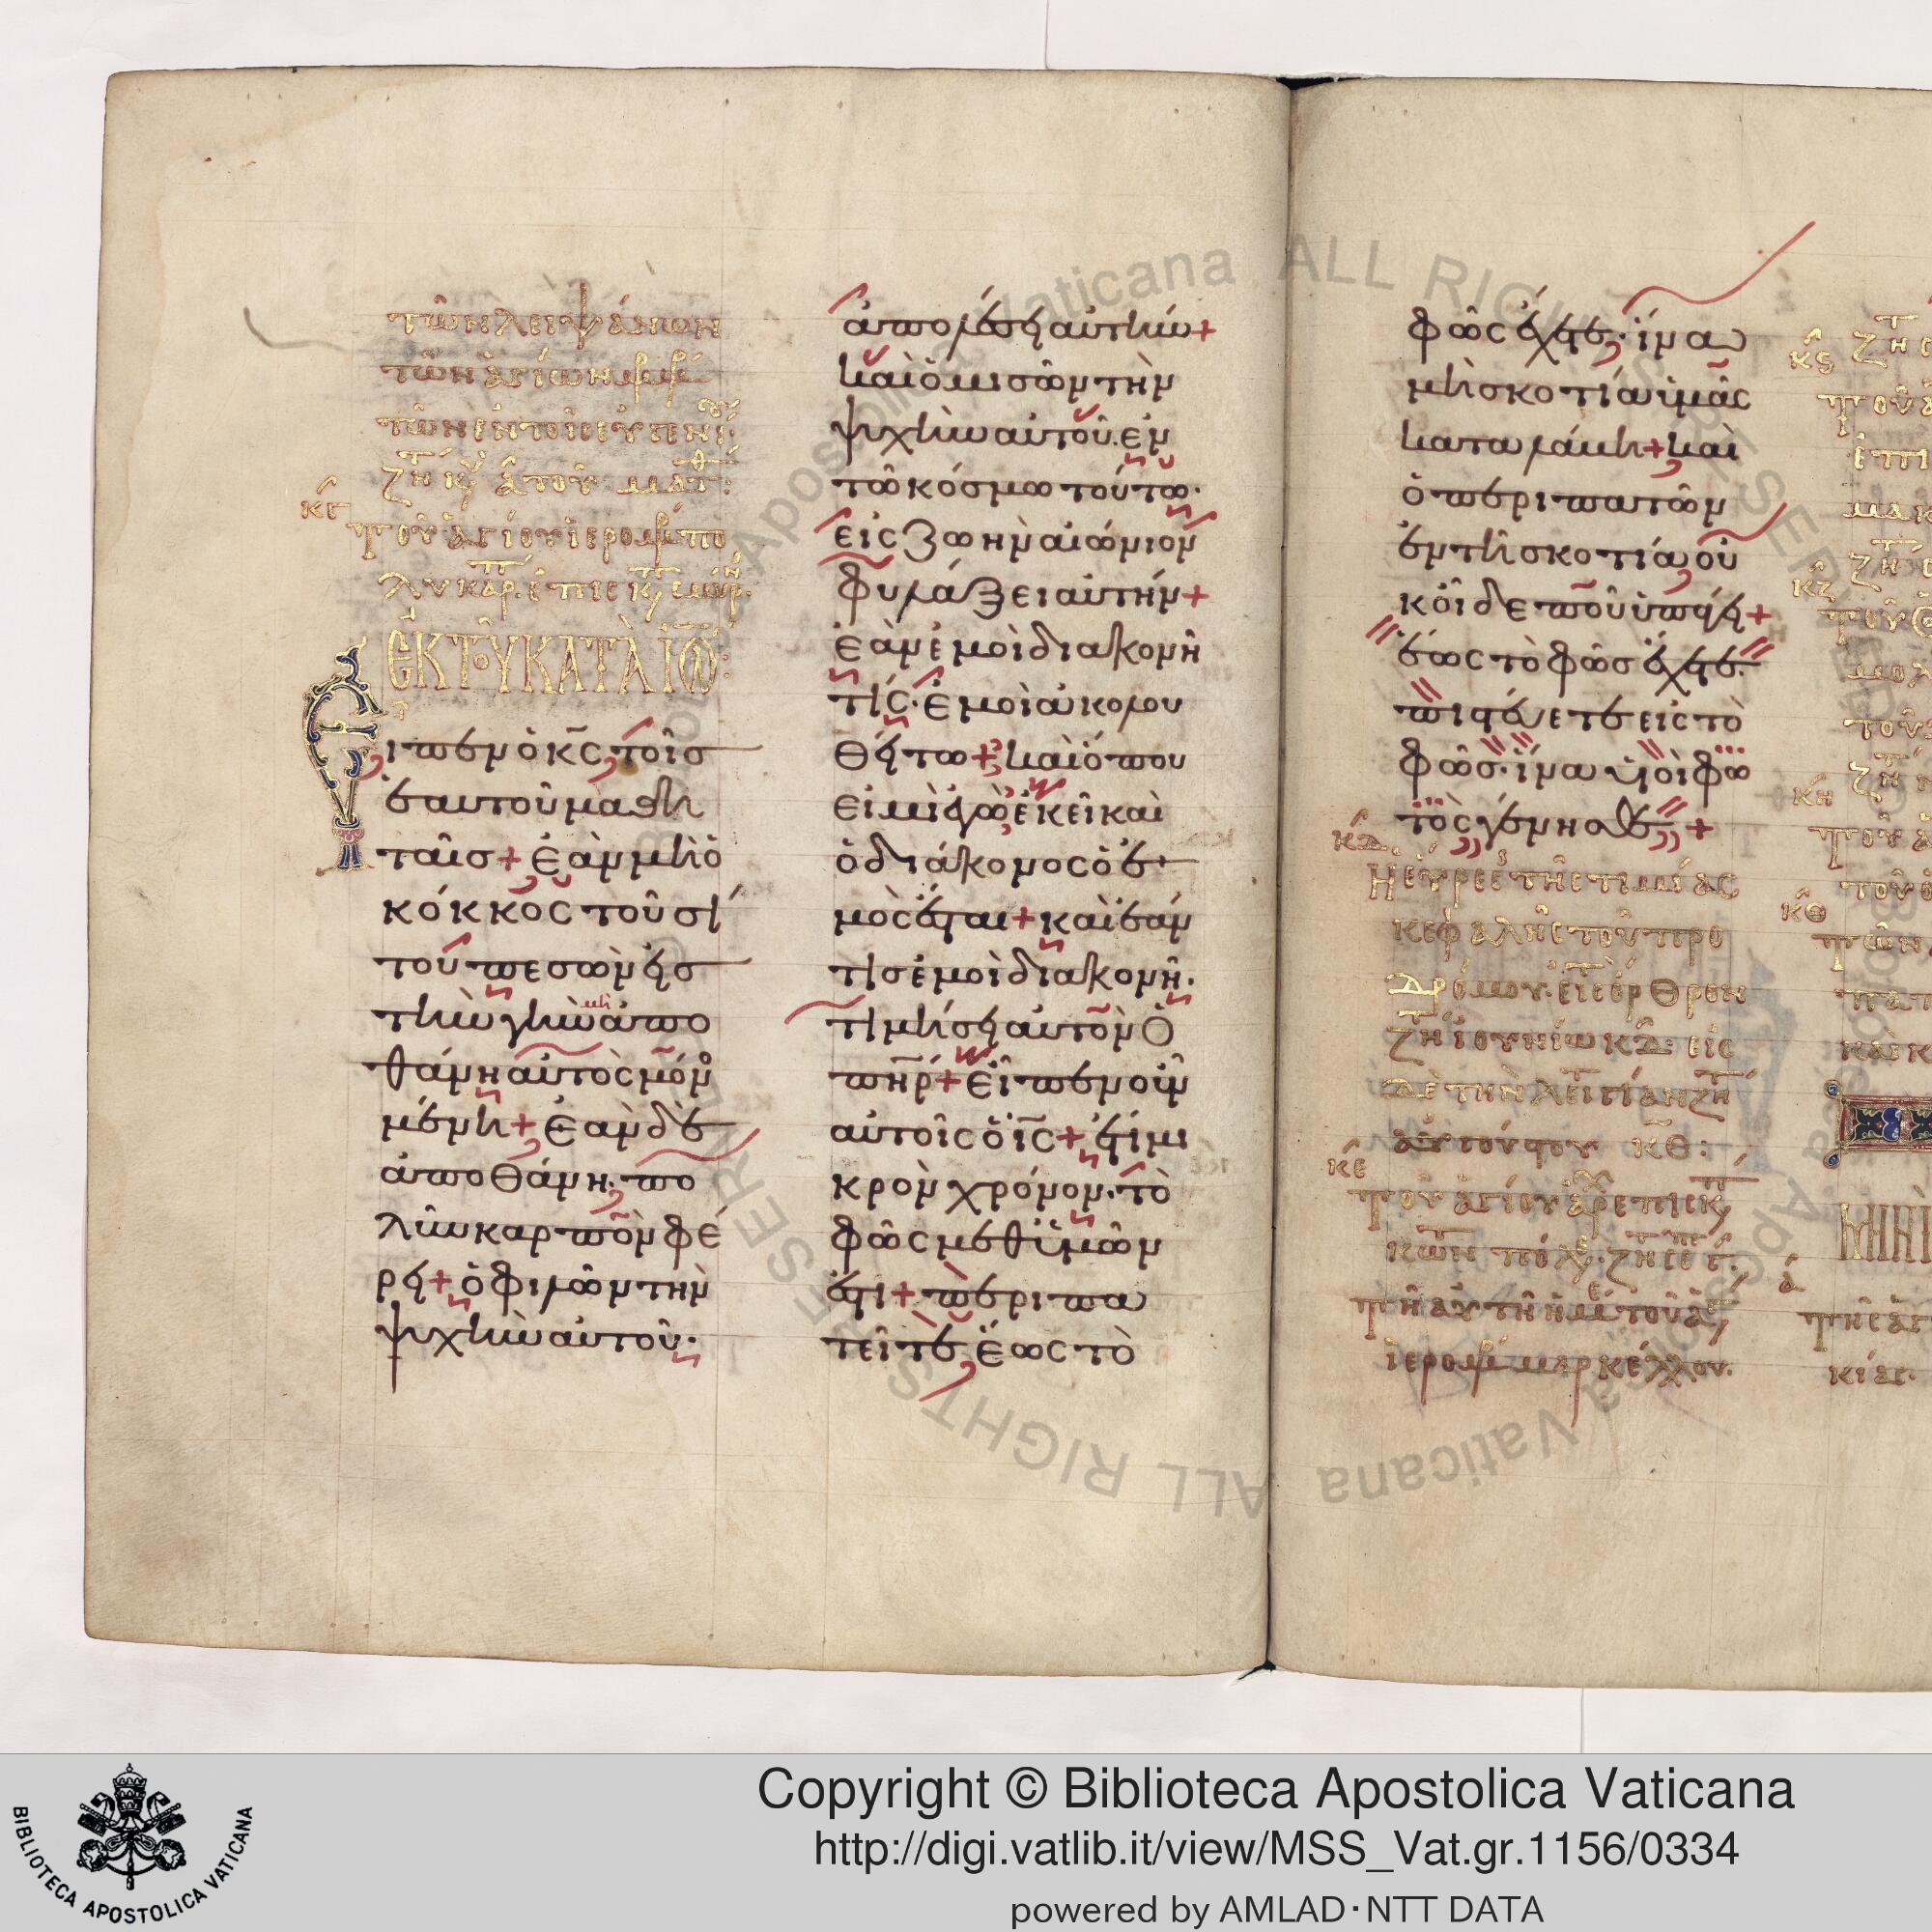 τῶν λειψάνων
τῶν ἁγίων
τῶν ἐν τοῖς εὐγενί
ζη
κγ
τοῦ ἁγίου ἱερομρ πο
λυκάρ. ἐπισκ
ΕΚ ΤΟΥ ΚΑΤΑ ΙΩ:
Εἶπεν ὁ κς τοῖς
ἑαυτοῦ μαθη
ταῖς + ἐὰν μὴ ὁ
κόκκος τοῦ σί
του πεσὼν εἰς
τὴν γῆν μὴ ἀπο
θάνη αὐτὸς μόνο
μένη + ἐὰν δὲ
ἀποθάνη. πο
λὺν καρπὸν φέ
ρει + ὁ φιλῶν τὴν
ψυχὴν αὐτοῦ.
ἀπολέσει αὐτὴν +
καὶ ὁ μισῶν τὴν
ψυχὴν αὐτοῦ. ἐν
τῶ κόσμω τούτω.
εἰς ζωὴν αἰώνιον
φυλάξει αὐτήν +
ἐὰν ἐμοὶ διακονῆ
τίς. ἐμοὶ ἀκολου
θείτω + καὶ ὅπου
εἰμὶ ἐγὼ ἐκεῖ καὶ
ὁ διάκονος ὁ ἐ
μὸς ἔσται + καὶ ἐάν
τις ἐμοὶ διακονῆ.
τιμήσει αὐτὸν ὁ
πηρ + εἶπεν οὖν
αὐτοῖς ὁ ις + ἔτι μι
κρὸν χρόνον. τὸ
φῶς μεθ' ὑμῶν
ἐστι + περιπα
τεῖτε ἕως τὸ
φῶς ἔχετε. ἵνα
μὴ σκοτία ὑμᾶς
καταλάβη + καὶ
ὁ περιπατῶν
ἐν τῆ σκοτία οὐ
κ οἶδε ποῦ ὑπάγει +
ἕως τὸ φῶς ἔχετε.
πιστεύετε εἰς τὸ
φῶς. ἵνα υἱοὶ φω
τὸς γένησθε +
κδ
Ἡ εὕρεσ τῆς τιμίας
κεφαλῆς τοῦ προ
δρόμου. εἰς τ ὄρθρον
ζη ἰουνίω κδ: εἰς
δὲ τὴν λειτ
αὐγούστου κθ:
κε
τοῦ ἁγίου
κων
τῆ αὐτῆ ἡμε τοῦ ἁγ
ἱερομρ μαρκέλλου.
κς
ζη
τοῦ ἁ
ἐπι
μακ
ζη
κζ
τοῦ
τοῦ
ζη
κη
τοῦ ἁ
τοῦ
κθ
τῶν
πατ
καὶ κ
ΜΗΝΙ
α
τῆς ἁγ
κίας.
Copyright © Biblioteca Apostolica Vaticana
http://digi.vatlib.it/view/MSS_Vat.gr.1156/0334
powered by AMLAD·NTT DATA
BIBLIOTECA APOSTOLICA VATICANA